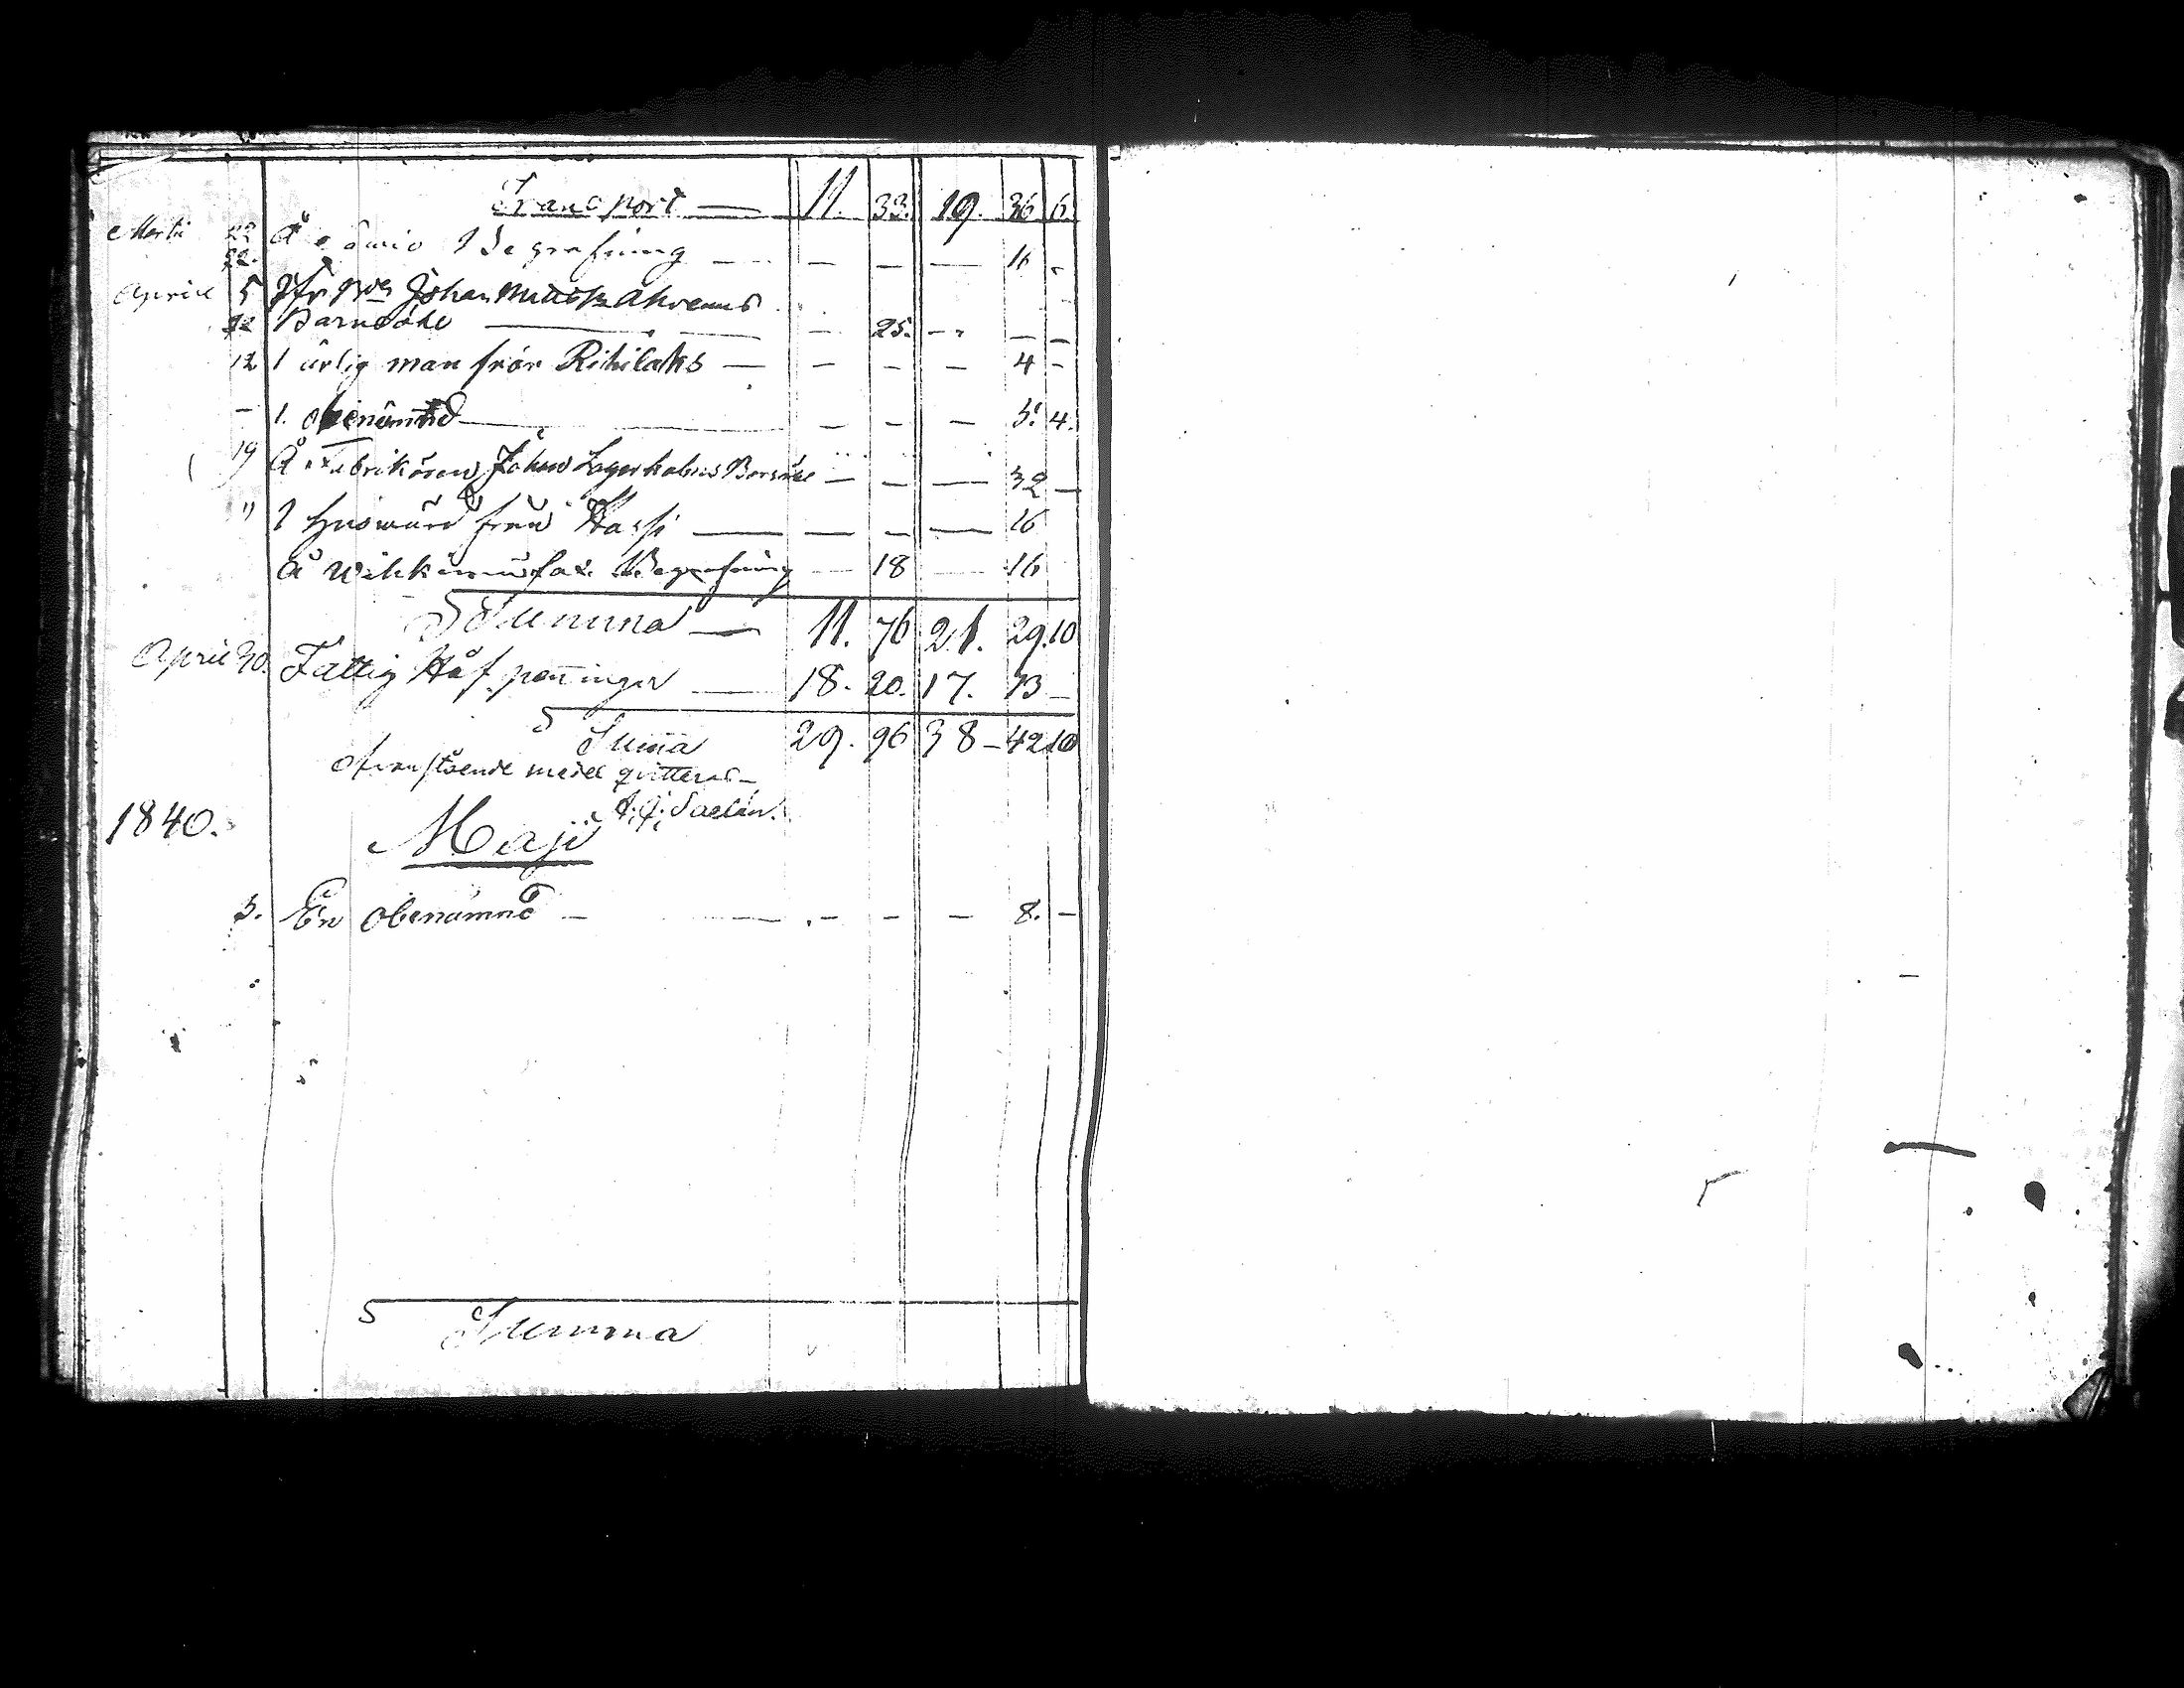 Transport — 11. 33. 19. 36 6.
Martii 22. Å Begrafning — — — — 16 -
Aprill 5 Johan Ahvenus
12 Barnsöhl — — 25. — — —
12 1 ärlig man från Rihilaks — — — — 4 -
- 1. obenämnd — — — — 5. 4.
19 Å Fabrikören Johan Lagerholms Barsöhl — — — 32 —
" 1 Husvärd från — — — — 16
Å Begrafning — 18 — 16
Summa — 11. 76 21. 29. 10
April 30. Fattig Håf penningar — 18. 20. 17. 13 —
Summa 29. 96 38 - 42 10
Ofvanstående medel qvitteras —
Saelan.
1840. Maji
3. En Obenämnd — — — — 8. —
Summa